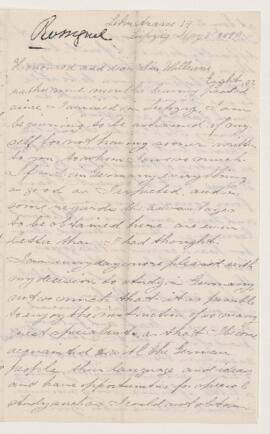 Rossignol
Leipzig
Honored and dear Sir
Eight or
months having passed
since I arrived in Leipzig, I am
beginning to be ashamed of my
self for not having sooner written
to you to whom I owe so much.
I find in Germany everything
as good as I expected and in
some regards the advantages
to be obtained here are even
better than I had thought.
I am every day more pleased with
my decision to study in Germany
not so much that it is possible
to enjoy the instruction of so many
great specialists as that I become
acquainted with the German
people, their language and ideas
and have opportunities for special
study such as I could not obtain